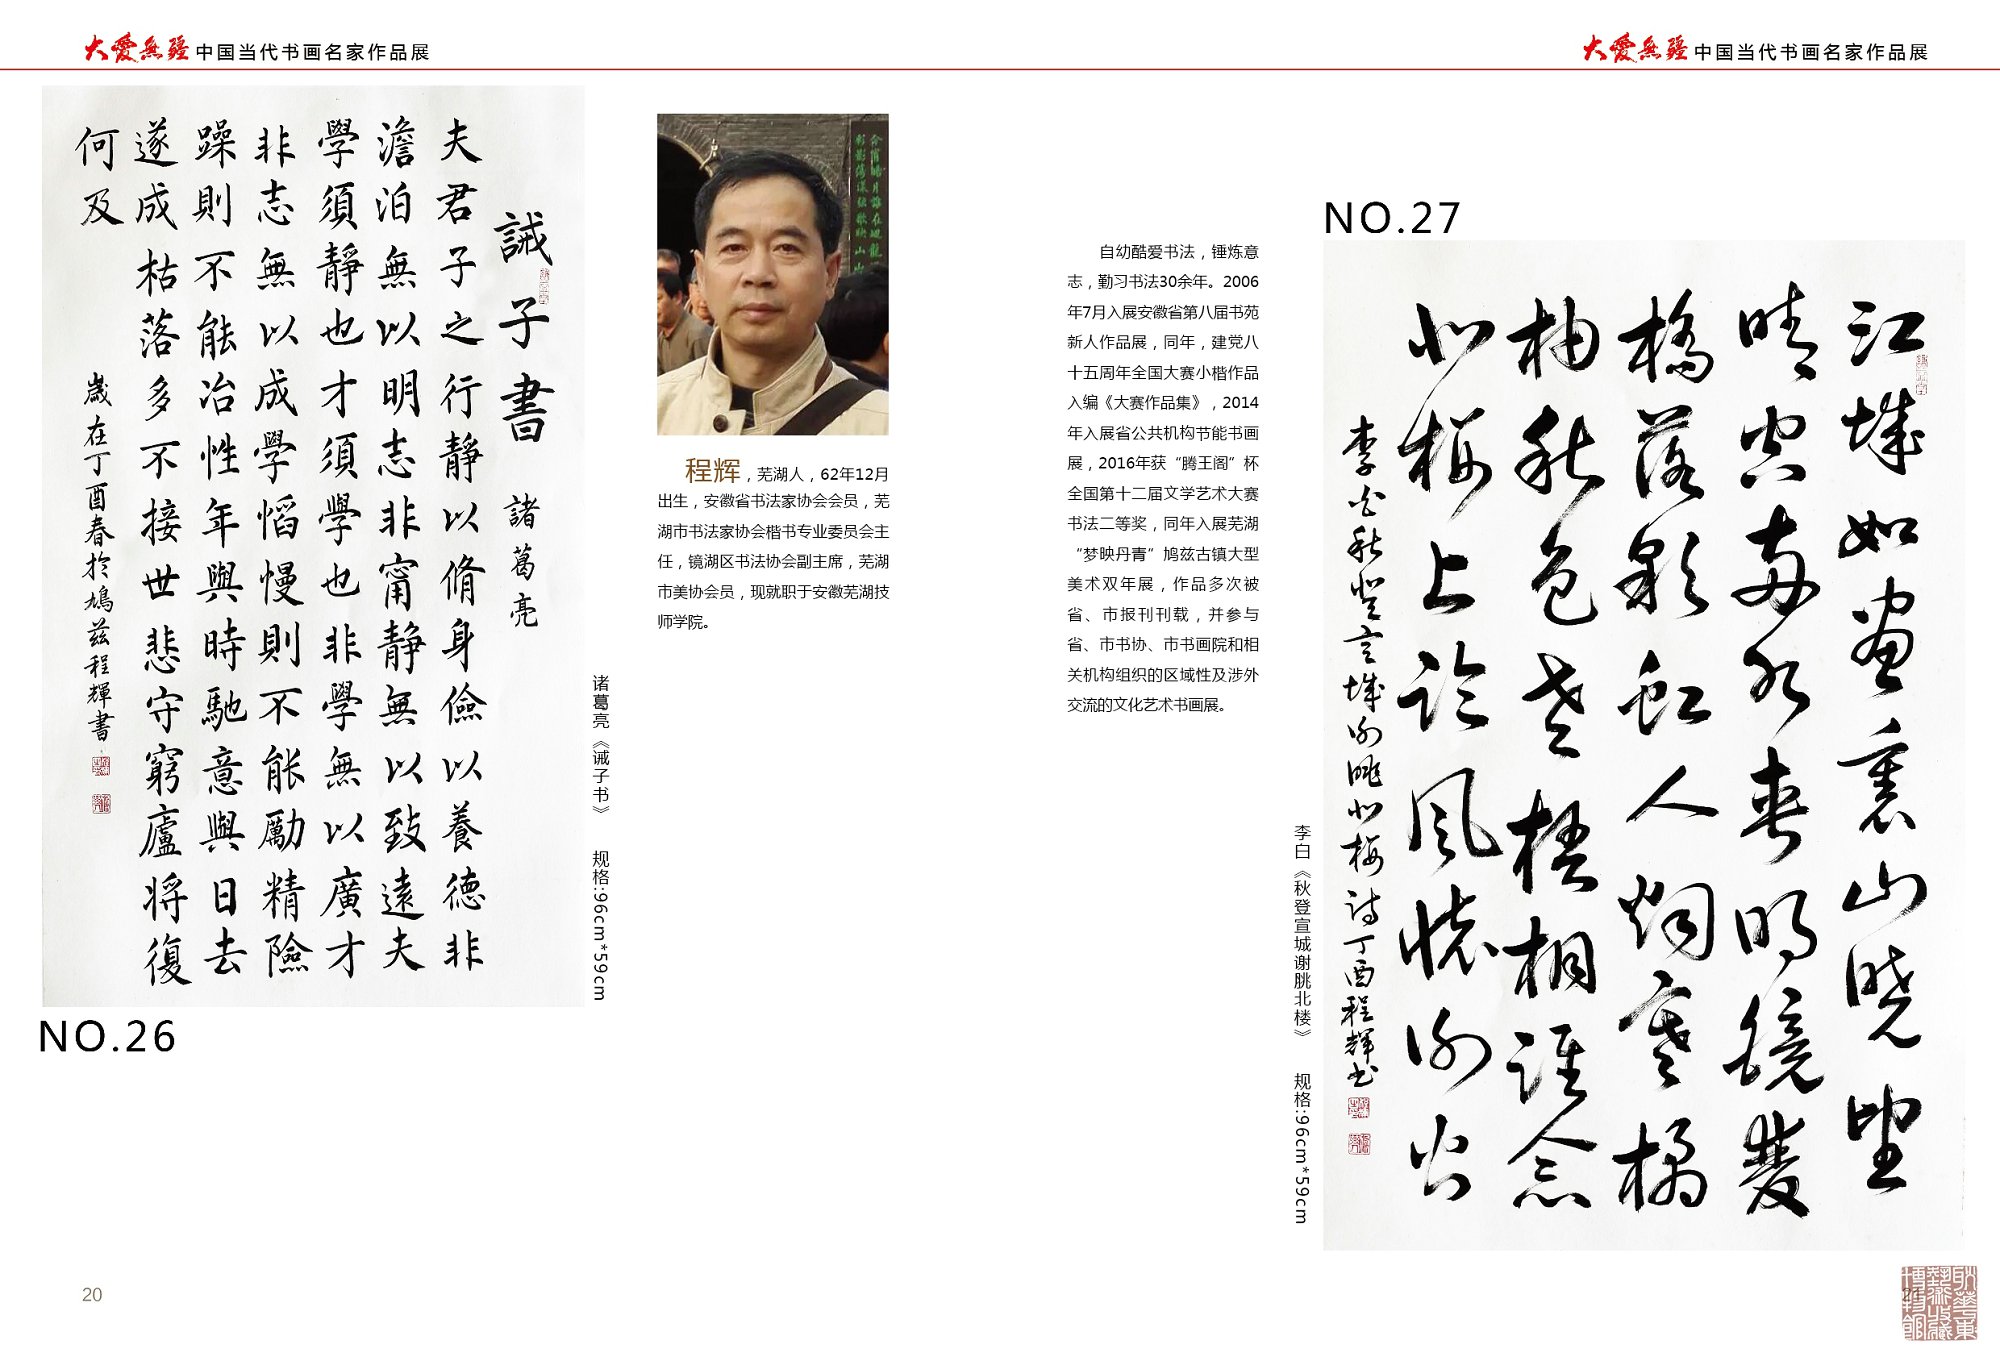 大愛無疆 中国当代书画名家作品展
大愛無疆 中国当代书画名家作品展
誡子書 諸葛亮
夫君子之行靜以脩身儉以養德非
澹泊無以明志非甯靜無以致遠夫
學須靜也才須學也非學無以廣才
非志無以成學慆慢則不能勵精險
躁則不能冶性年與時馳意與日去
遂成枯落多不接世悲守窮廬將復
何及
歲在丁酉春於鳩兹程輝書
诸葛亮《诫子书》 规格:96cm*59cm
NO.26
程辉，芜湖人，62年12月
出生，安徽省书法家协会会员，芜
湖市书法家协会楷书专业委员会主
任，镜湖区书法协会副主席，芜湖
市美协会员，现就职于安徽芜湖技
师学院。
自幼酷爱书法，锤炼意
志，勤习书法30余年。2006
年7月入展安徽省第八届书苑
新人作品展，同年，建党八
十五周年全国大赛小楷作品
入编《大赛作品集》，2014
年入展省公共机构节能书画
展，2016年获“腾王阁”杯
全国第十二届文学艺术大赛
书法二等奖，同年入展芜湖
“梦映丹青”鸠兹古镇大型
美术双年展，作品多次被
省、市报刊刊载，并参与
省、市书协、市书画院和相
关机构组织的区域性及涉外
交流的文化艺术书画展。
NO.27
江城如画裏山晓望
晴空两水夹明镜雙
橋落彩虹人烟寒橘
柚秋色老梧桐誰念
北楼上临风懷谢公
李白秋登宣城谢眺北楼诗丁酉程輝书
李白《秋登宣城谢朓北楼》 规格:96cm*59cm
20
21